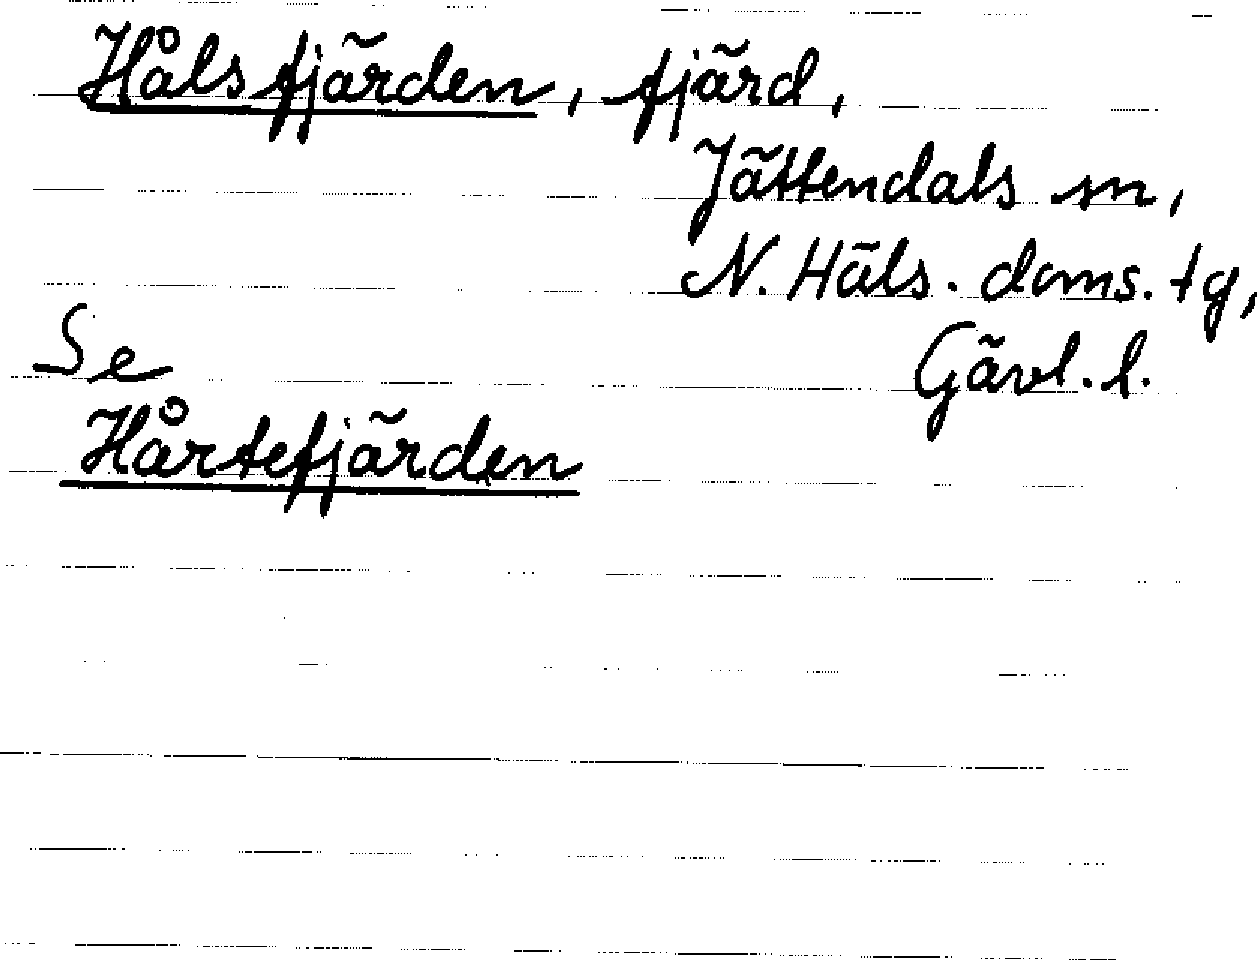 Hålsfjärden, fjärd,
Jättendals sn,
N. Häls. doms. tg,
Gävl. l.
Se
Hårtefjärden